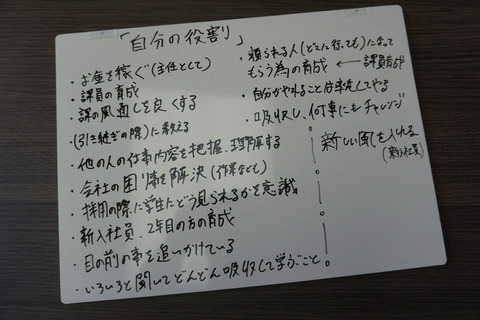 「自分の役割」
・お金を稼ぐ(主任として)
・課員の育成
・課の風通しを良くする
・(引き継ぎの際)に教える
・他の人の仕事内容を把握、理解する
・会社の困り事を解決(作業なども)
・採用の際に学生にどう見られるかを意識
・新入社員、2年目の方の育成
・目の前の事を追いかけている
・いろいろと聞いてどんどん吸収して学ぶこと
・頼られる人(どこに行っても)になって
もらう為の育成 ← 課員育成が
・自分がやれることは率先してやる
・吸収し、何事にもチャレンジ
新しい風を入れる
(新入社員)